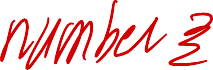 number 3